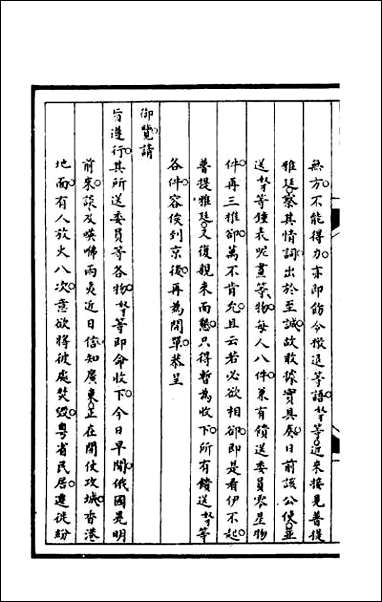 無方不能得力亦即飭令撤退等語奴才等近來接見普提
雅廷察其情詞出於至誠故敢據實具奏日前該公使並
送奴才等鐘表呢畫等物每人八件兼有饋送委員零星物
件再三推卻萬不肯允且云若必欲相卻即是看伊不起
普提雅廷又復親來面懇只得暫為收下所有饋送奴才等
各件容俟到京後再為開單恭呈
御覽請
旨遵行其所送委員等各物奴才等即命收下今日早聞俄國晃明
前來談及㗆咈兩夷近日信知廣東正在開仗攻城香港
地面有人放火八次意欲將彼處焚燬粵省民居遷徙紛